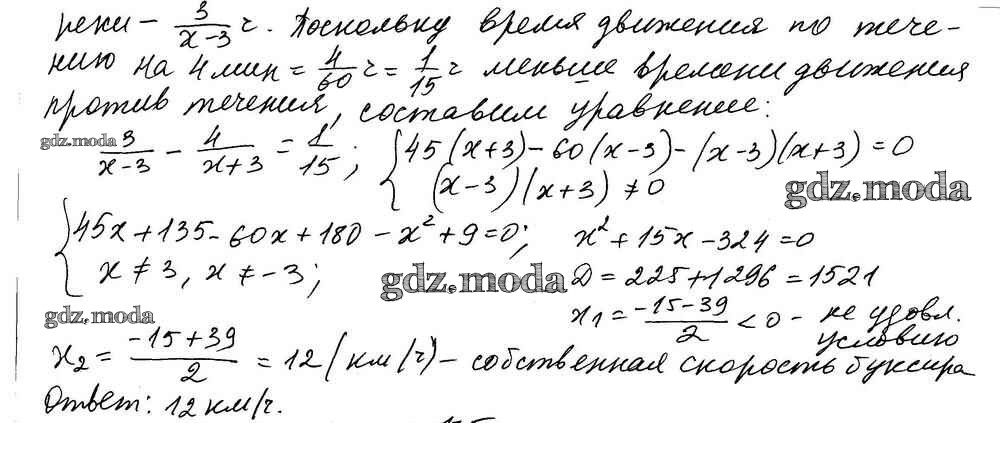 реки – 3/(x-3) ч. Поскольку время движения по тече-
нию на 4 мин = 4/60 ч = 1/15 ч меньше времени движения
против течения, составим уравнение:
gdz.moda
3/(x-3) - 4/(x+3) = 1/15; { 45(x+3) - 60(x-3) - (x-3)(x+3) = 0
(x-3)(x+3) ≠ 0
gdz.moda
{ 45x + 135 - 60x + 180 - x² + 9 = 0; x² + 15x - 324 = 0
x ≠ 3, x ≠ -3; gdz.moda D = 225 + 1296 = 1521
gdz.moda x₁ = (-15-39)/2 < 0 - не удовл.
условию
x₂ = (-15+39)/2 = 12 (км/ч) – собственная скорость буксира
Ответ: 12 км/ч.